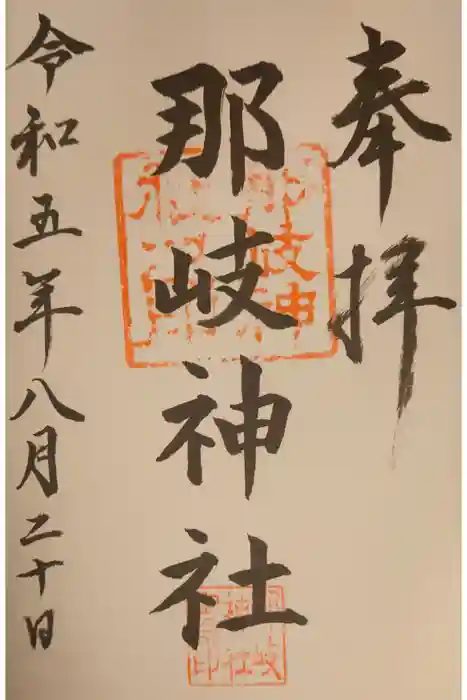 奉拝
那岐神社
令和五年八月二十日